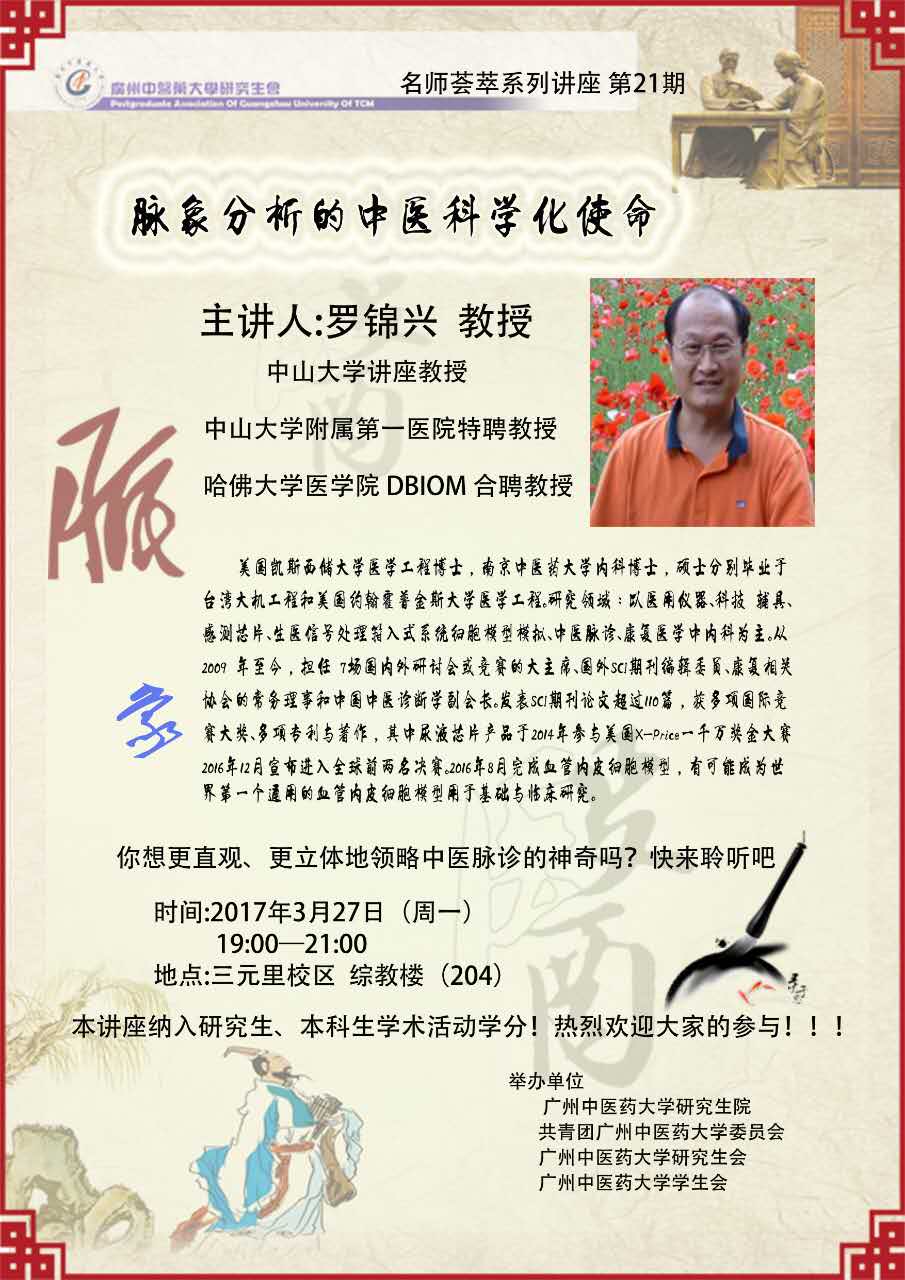 廣州中醫藥大學研究生會
Postgraduate Association Of Guangzhou University Of TCM
名师荟萃系列讲座 第21期
脉象分析的中医科学化使命
主讲人:罗锦兴 教授
中山大学讲座教授
中山大学附属第一医院特聘教授
哈佛大学医学院 DBIOM 合聘教授
脈
象
美国凯斯西储大学医学工程博士，南京中医药大学内科博士，硕士分别毕业于
台湾大机工程和美国约翰霍普金斯大学医学工程。研究领域：以医用仪器、科技 辅具、
感测芯片、生医信号处理箝入式系统细胞模型模拟、中医脉诊、康复医学中内科为主。从
2009 年至今，担任 7场国内外研讨会或竞赛的大主席、国外SCI期刊编辑委员、康复相关
协会的常务理事和中国中医诊断学副会长。发表SCI期刊论文超过110篇，获多项国际竞
赛大奖、多项专利与著作，其中尿液芯片产品于2014年参与美国X-Price一千万奖金大赛
2016年12月宣布进入全球前两名决赛。2016年8月完成血管内皮细胞模型，有可能成为世
界第一个通用的血管内皮细胞模型用于基础与临床研究。
你想更直观、更立体地领略中医脉诊的神奇吗？快来聆听吧
时间:2017年3月27日（周一）
19:00—21:00
地点:三元里校区 综教楼（204）
本讲座纳入研究生、本科生学术活动学分！热烈欢迎大家的参与！！！
举办单位
广州中医药大学研究生院
共青团广州中医药大学委员会
广州中医药大学研究生会
广州中医药大学学生会